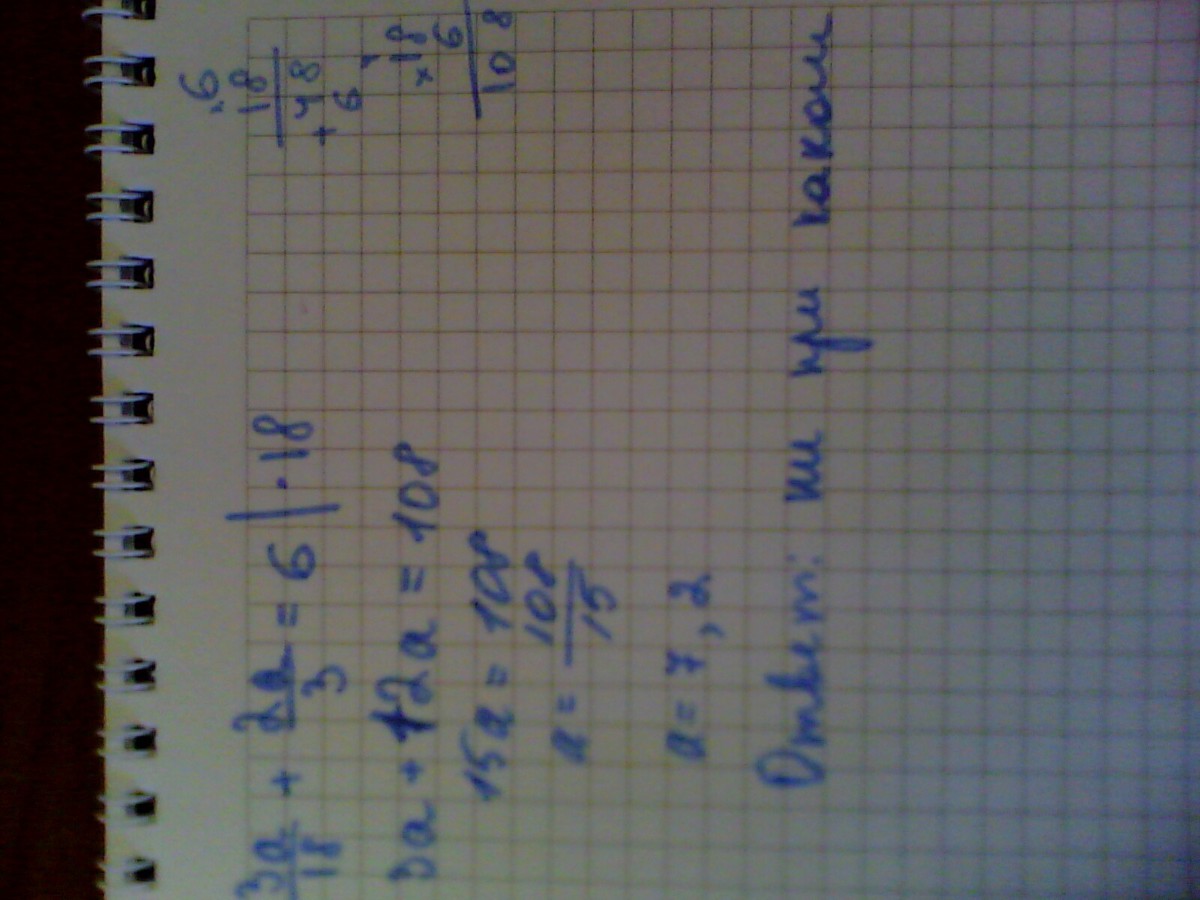 3a/18 + 2a/3 = 6 | · 18
3a + 12a = 108
15a = 108
a = 108/15
a = 7,2
Ответ: ни при каком
×6
18
48
+ 6
×18
6
108